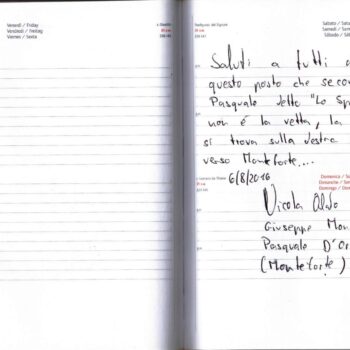 Venerdì / Friday
Vendredi / Freitag
Viernes / Sexta
Sabato / Satu
Samedi / Sam
Sábado / Sáb
Saluti a tutti a
questo posto che seco
Pasquale detto "Lo Sp
non é la vetta, la
si trova sulla destra
verso Monteforte....
6/8/2016
Domenica / S
Dimanche / So
Domingo / Do
Nicola Aldo
Giuseppe Mon
Pasquale D'Or
(Monteforte)